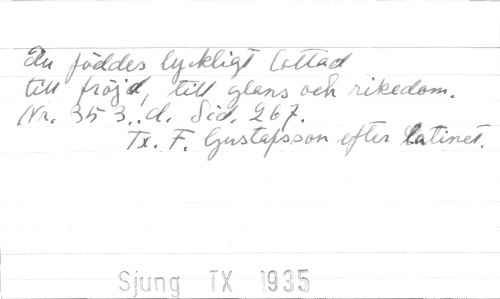 Du föddes lyckligt lottad
till fröjd, till glans och rikedom.
Nr. 353. d. Sid. 267.
Tx. F. Gustafsson efter latinet.
Sjung TX 1935